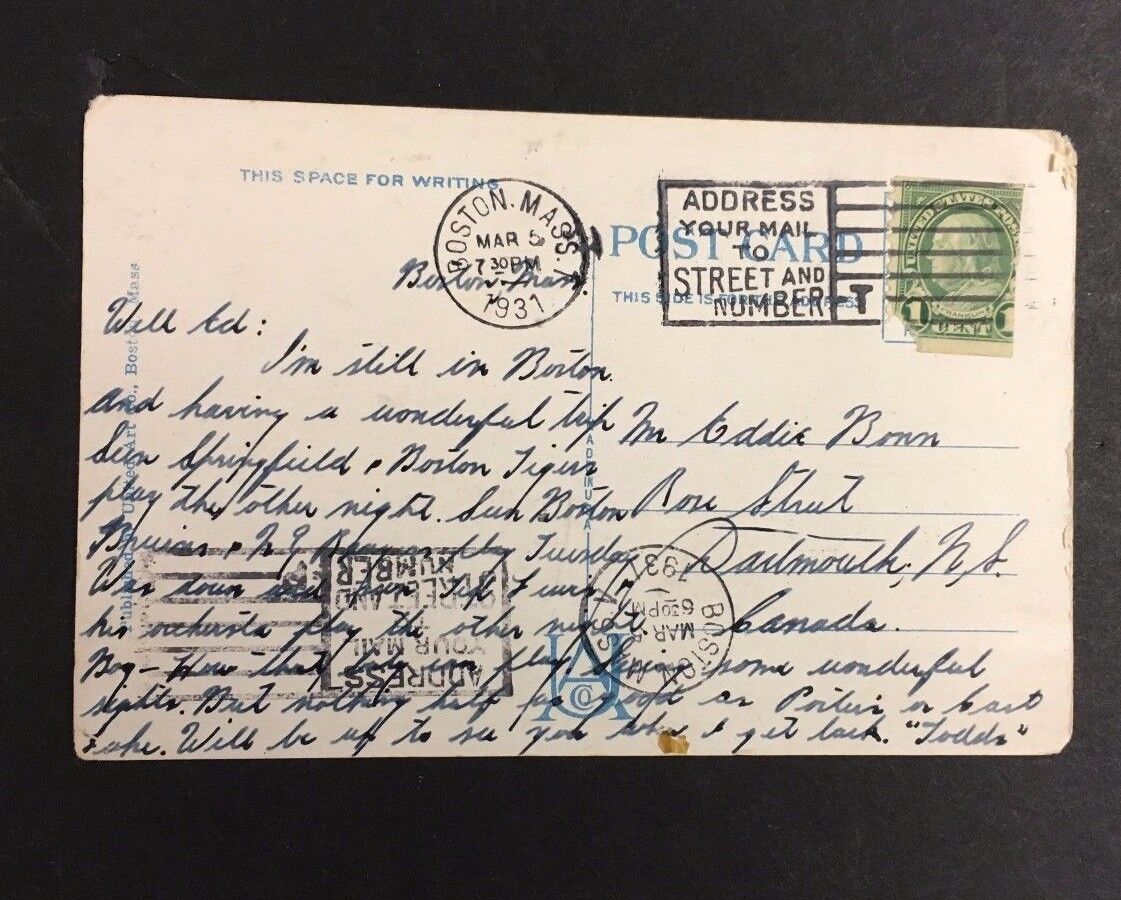 THIS SPACE FOR WRITING
BOSTON. MASS.
MAR 5
7 30 PM
1931
ADDRESS
YOUR MAIL
TO
STREET AND
NUMBER
POST CARD
THIS SIDE IS FOR THE ADDRESS
UNITED STATES POSTAGE
FRANKLIN
1 CENT 1
Boston Mass.
Well Ed:
I'm still in Boston.
and having a wonderful trip
Seen Springfield & Boston Tigers
play the other night. Seen Boston
Bruins & N.Y. play Tuesday
Was down and
his orchestra play the other night
Boy - How that boy can play. Seen some wonderful
sights. But nothing half as good as or East
Lake. Will be up to see you when I get back. "Todds"
Mr Eddie Bonn
Rose Street
Dartmouth, N.S.
Canada.
Published by United Art Co., Boston, Mass
ADDRESS
YOUR MAIL
TO
STREET AND
NUMBER
BOSTON
MAR 5
6 30 PM
1931
UACo